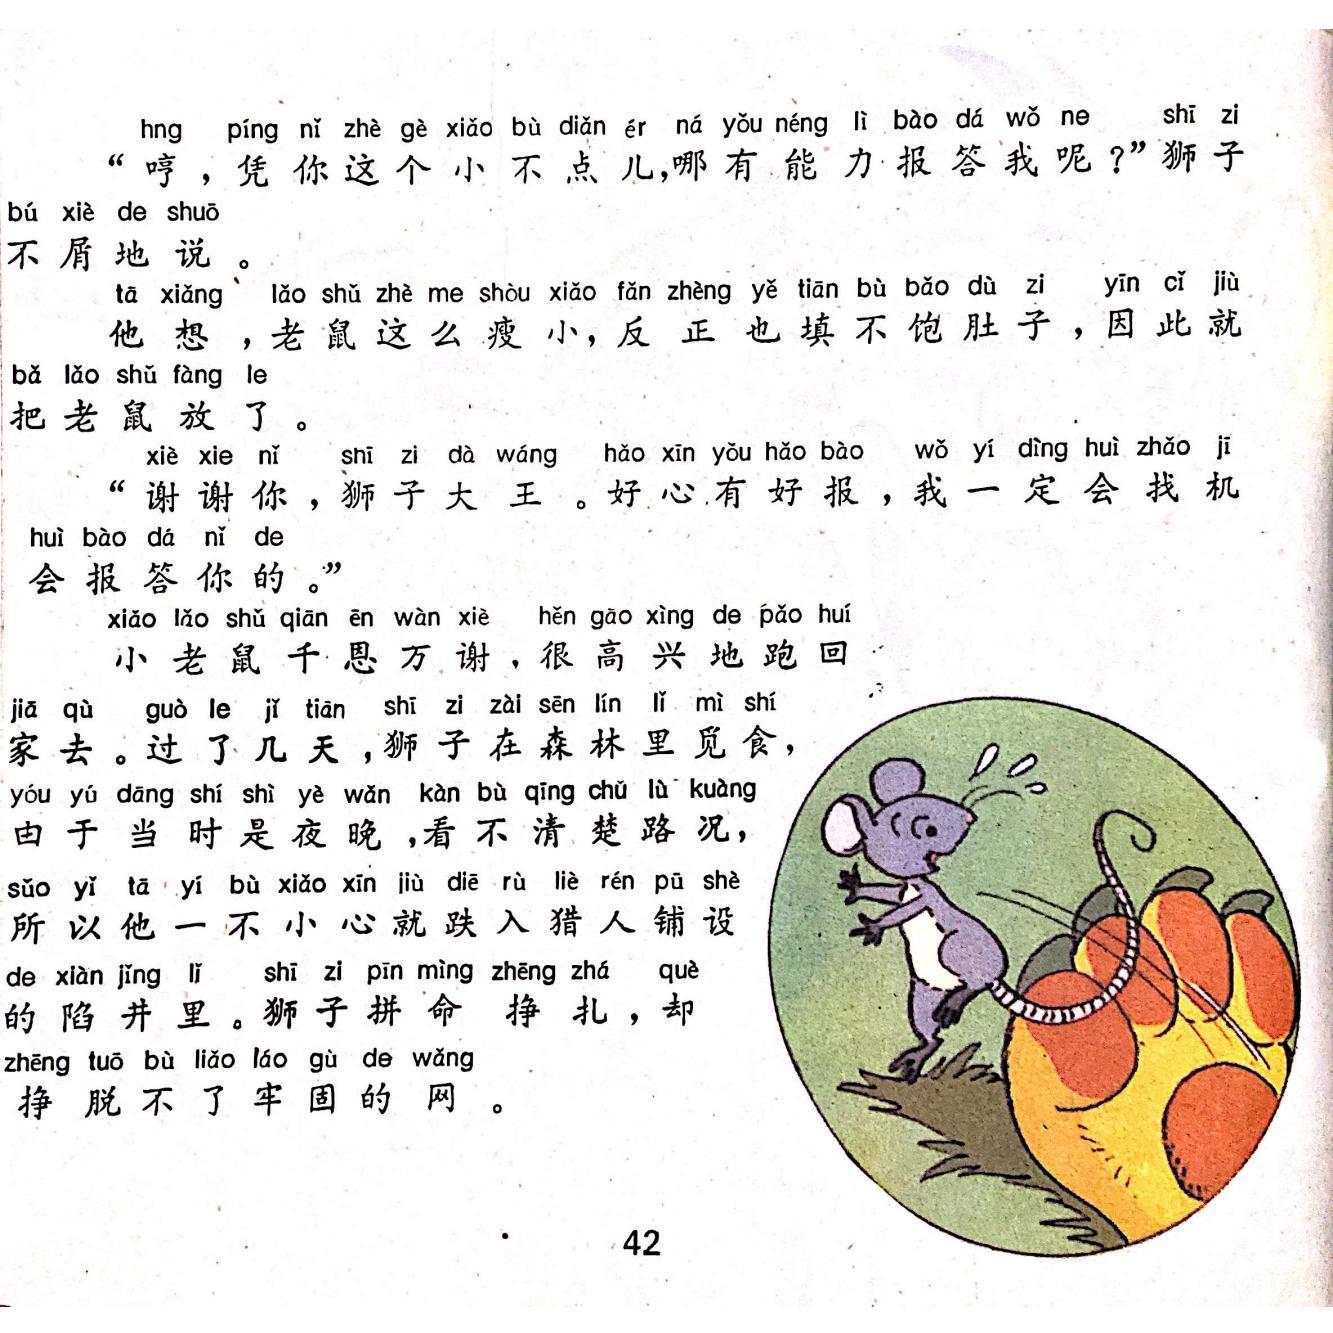 hng píng nǐ zhè gè xiǎo bù diǎn ér ná yǒu néng lì bào dá wǒ ne shī zi
“哼，凭你这个小不点儿，哪有能力报答我呢？”狮子
bú xiè de shuō
不屑地说。
tā xiǎng lǎo shǔ zhè me shòu xiǎo fǎn zhèng yě tiān bù bǎo dù zi yīn cǐ jiù
他想，老鼠这么瘦小，反正也填不饱肚子，因此就
bǎ lǎo shǔ fàng le
把老鼠放了。
xiè xie nǐ shī zi dà wáng hǎo xīn yǒu hǎo bào wǒ yí dìng huì zhǎo jī
“谢谢你，狮子大王。好心有好报，我一定会找机
huì bào dá nǐ de
会报答你的。”
xiǎo lǎo shǔ qiān ēn wàn xiè hěn gāo xìng de pǎo huí
小老鼠千恩万谢，很高兴地跑回
jiā qù guò le jǐ tiān shī zi zài sēn lín lǐ mì shí
家去。过了几天，狮子在森林里觅食，
yóu yú dāng shí shì yè wǎn kàn bù qīng chǔ lù kuàng
由于当时是夜晚，看不清楚路况，
suǒ yǐ tā yí bù xiǎo xīn jiù diē rù liè rén pū shè
所以他一不小心就跌入猎人铺设
de xiàn jǐng lǐ shī zi pīn mìng zhēng zhá què
的陷井里。狮子拼命挣扎，却
zhēng tuō bù liǎo láo gù de wǎng
挣脱不了牢固的网。
42